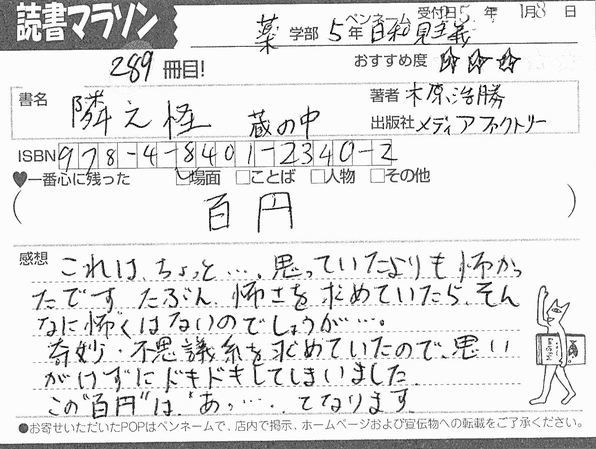 読書マラソン
薬 学部 5年 ペンネーム 日和見主義 受付日 5年 1月8日
289 冊目!
おすすめ度 ☆☆☆
書名 隣之怪 蔵の中
著者 木原浩勝
出版社 メディアファクトリー
ISBN 978-4-8401-2340-2
♥一番心に残った ☑場面 □ことば □人物 □その他
( 百円 )
感想 これは、ちょっと…。思っていたよりも怖かっ
たです。たぶん、怖さを求めていたら、そん
なに怖くはないのでしょうが…。
奇妙・不思議系を求めていたので、思い
がけずにドキドキしてしまいました。
この"百円"は、"あっ…、てなります。
●お寄せいただいたPOPはペンネームで、店内で掲示、ホームページおよび宣伝物への転載をご了承ください。